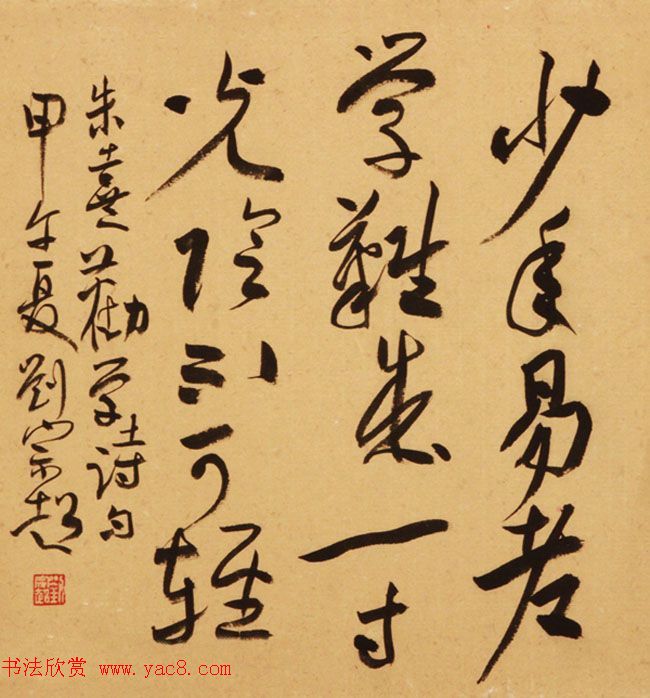 少年易老
学難成一寸
光陰不可輕
朱熹勸学詩句
甲午夏劉宗超
书法欣赏 www.yac8.com